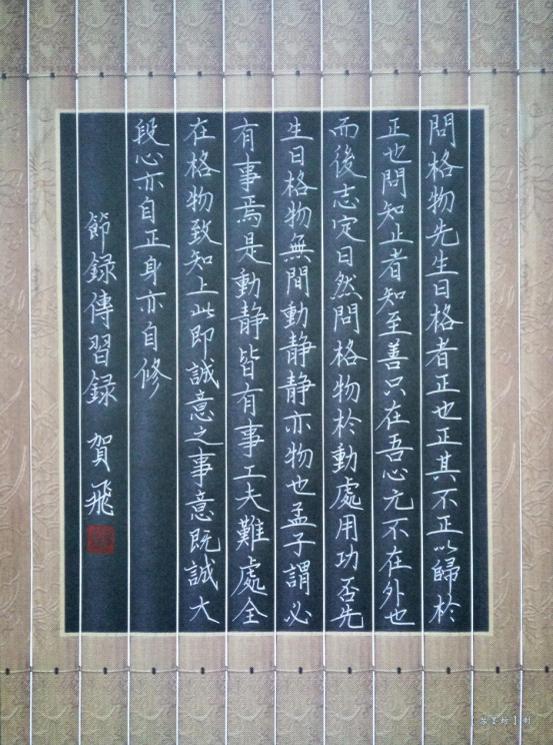 問格物先生曰格者正也正其不正以歸於
正也問知止者知至善只在吾心元不在外也
而後志定曰然問格物於動處用功否先
生曰格物無間動静静亦物也孟子謂必
有事焉是動静皆有事工夫難處全
在格物致知上此即誠意之事意既誠大
段心亦自正身亦自修
節録傳習録 賀飛